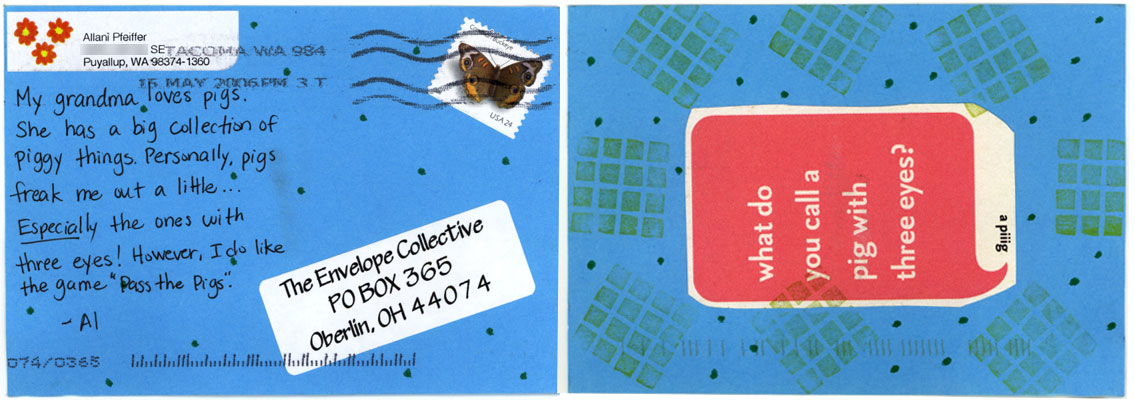 Allani Pfeiffer
SE
Puyallup, WA 98374-1360
TACOMA WA 984
15 MAY 2006 PM 3 T
Buckeye
USA 24
My grandma loves pigs.
She has a big collection of
piggy things. Personally, pigs
freak me out a little...
Especially the ones with
three eyes! However, I do like
the game "Pass the Pigs".
- Al
The Envelope Collective
PO BOX 365
Oberlin, OH 44074
074/0365
what do
you call a
pig with
three eyes?
a piiig